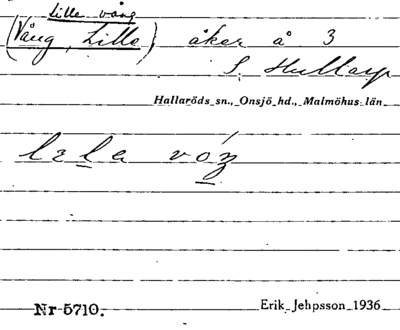 Lille vång
(Vång, Lille) åker å 3
S. Hullarp
Hallaröds sn., Onsjö hd., Malmöhus län
Nr 5710.
Erik Jehpsson 1936